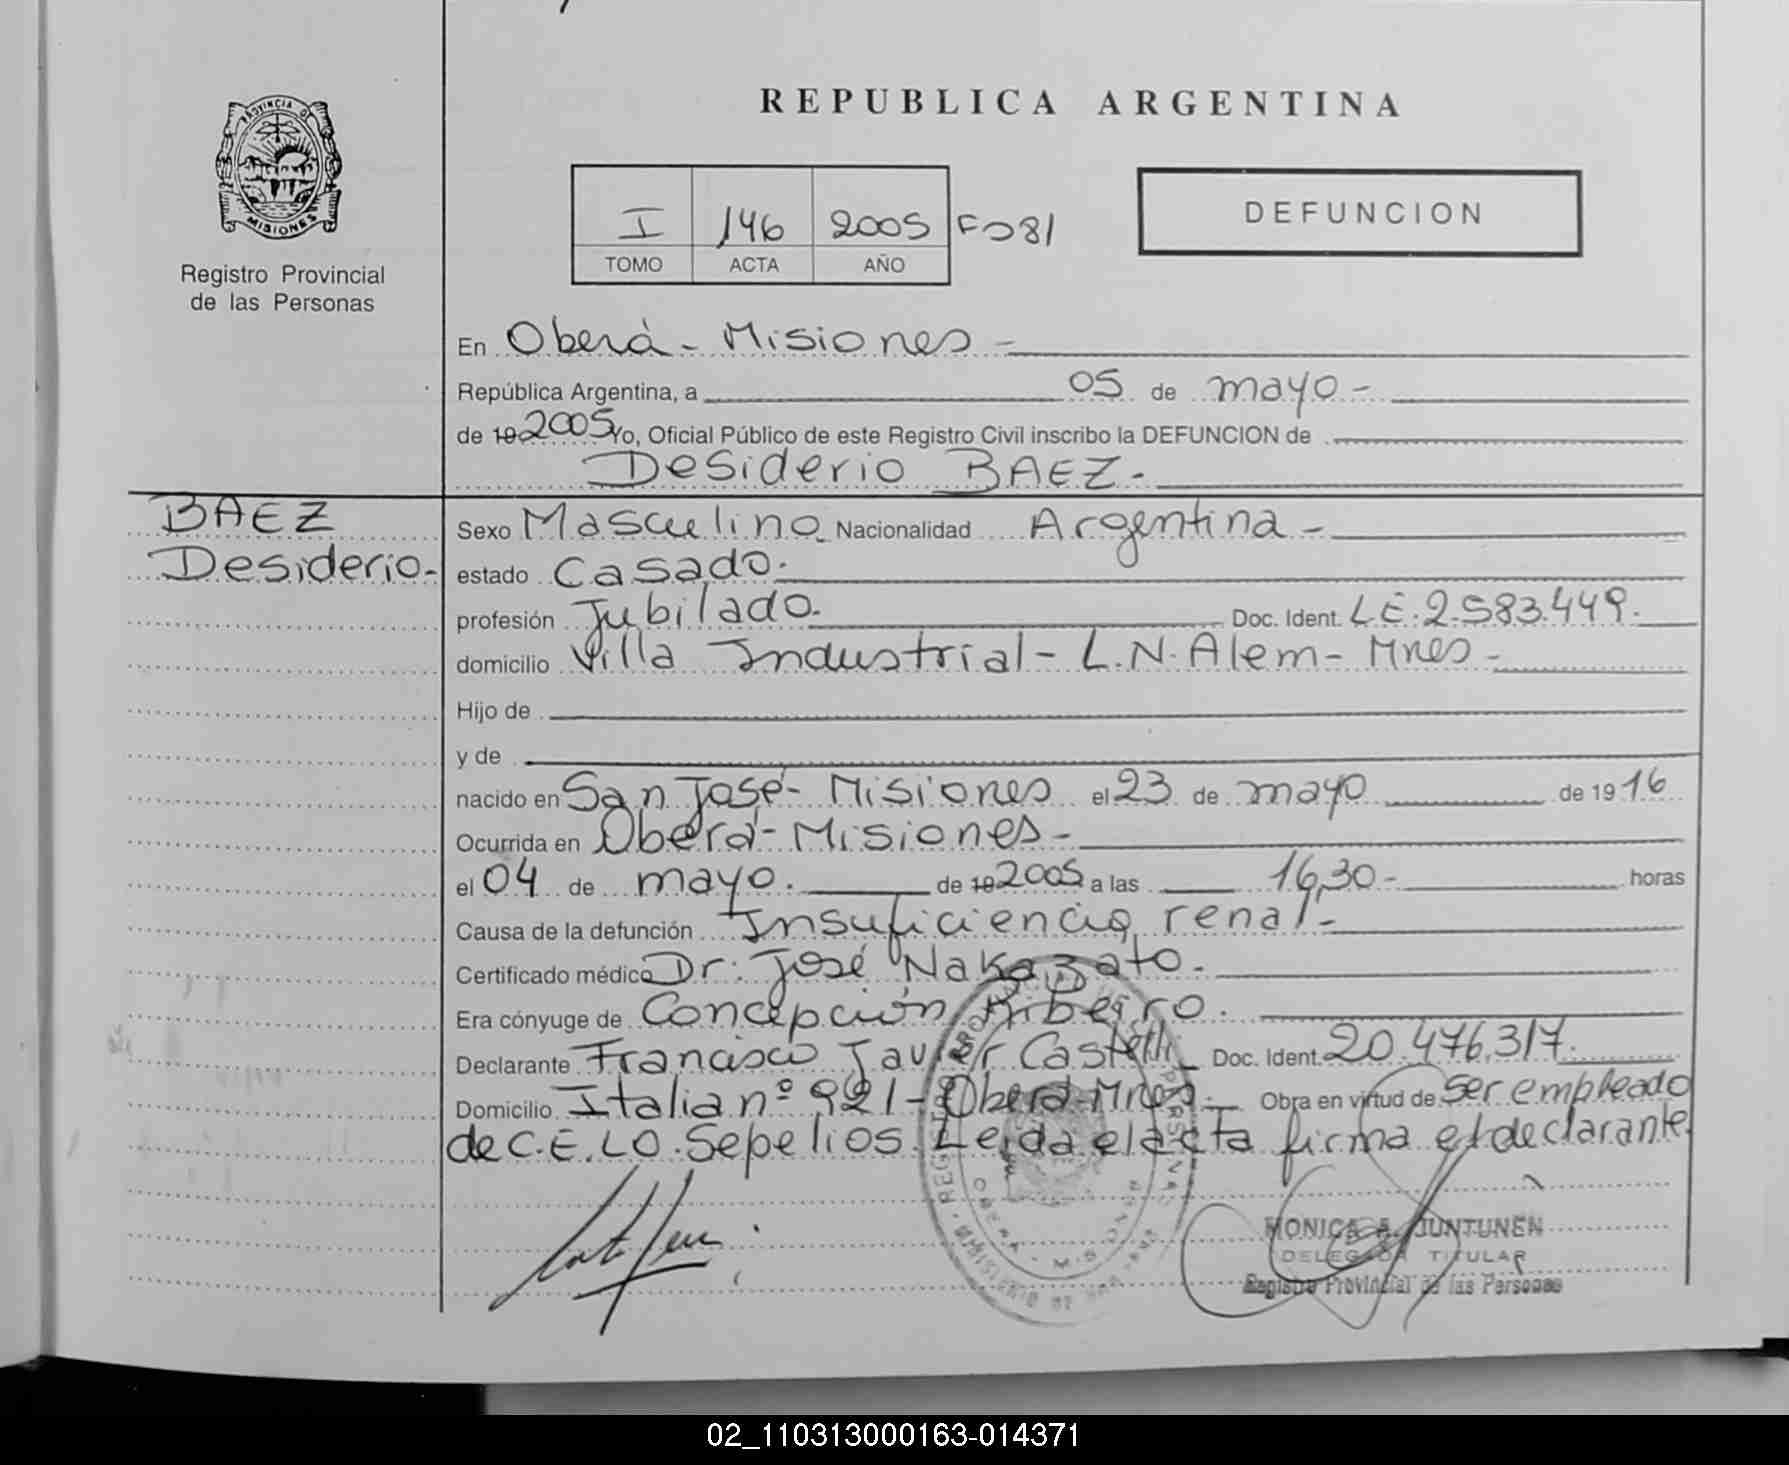 REPUBLICA ARGENTINA
PROVINCIA D
MISIONES
Registro Provincial
de las Personas
I 146 2005 F 081
TOMO ACTA AÑO
DEFUNCION
En Oberá - Misiones -
República Argentina, a 05 de mayo -
de 19 2005 Yo, Oficial Público de este Registro Civil inscribo la DEFUNCION de
Desiderio BAEZ -
BAEZ
Desiderio -
Sexo Masculino Nacionalidad Argentina -
estado Casado.
profesión Jubilado. Doc. Ident. LE. 2.583.449.
domicilio Villa Industrial - L.N. Alem - Mnes -
Hijo de
y de
nacido en San José - Misiones el 23 de mayo de 19 16
Ocurrida en Oberá - Misiones -
el 04 de mayo. de 19 2005 a las 16,30 - horas
Causa de la defunción Insuficiencia renal -
Certificado médico Dr: José Nakazato.
Era cónyuge de Concepción Ribeiro.
Declarante Francisco Javier Castelli Doc. Ident. 20.476.317.
Domicilio Italia nº 921 - Oberá - Mnes. Obra en virtud de Ser empleado
de C.E.L.O. Sepelios. Leida el acta firma el declarante.
MONICA A. JUNTUNEN
DELEGADA TITULAR
Registro Provincial de las Personas
02_110313000163-014371